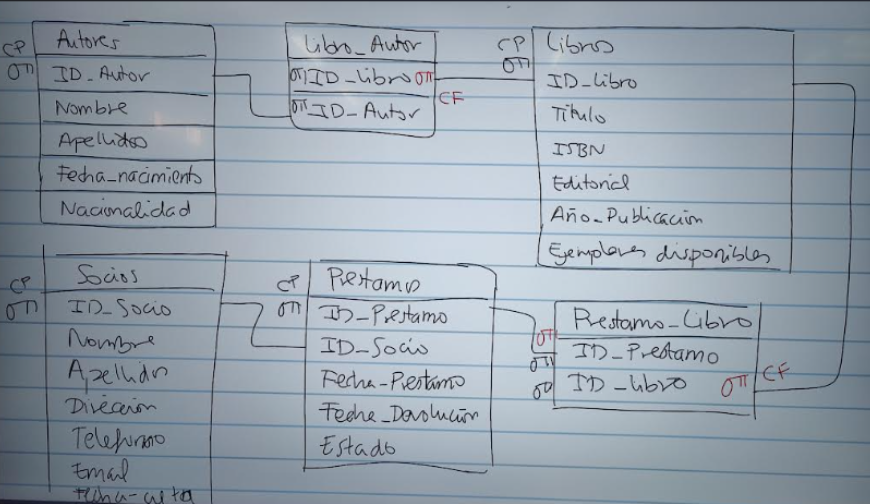 Autores
CP
ID_Autor
Nombre
Apellidos
Fecha_nacimiento
Nacionalidad
Libro_Autor
ID_Libro
CF
ID_Autor
Libros
CP
ID_Libro
Título
ISBN
Editorial
Año_Publicación
Ejemplares disponibles
Socios
CP
ID_Socio
Nombre
Apellidos
Dirección
Teléfono
Email
Fecha-alta
Préstamo
CP
ID_Préstamo
ID_Socio
Fecha-Préstamo
Fecha_Devolución
Estado
Préstamo_Libro
ID_Préstamo
ID_Libro
CF